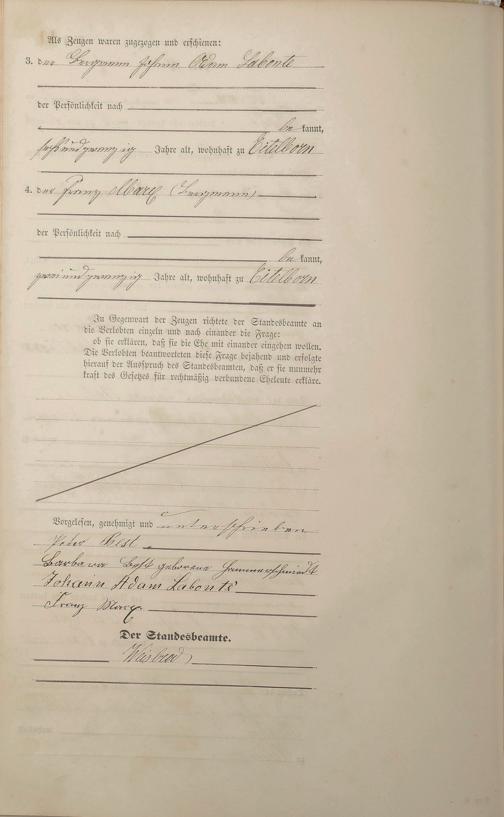 Als Zeugen waren zugezogen und erschienen:
3. der Bergmann Johann Adam Labonte
der Persönlichkeit nach
be kannt,
sechsundzwanzig Jahre alt, wohnhaft zu Eitelborn
4. der Franz Marx (Bergmann)
der Persönlichkeit nach
be kannt,
zweiundzwanzig Jahre alt, wohnhaft zu Eitelborn
In Gegenwart der Zeugen richtete der Standesbeamte an
die Verlobten einzeln und nach einander die Frage:
ob sie erklären, daß sie die Ehe mit einander eingehen wollen.
Die Verlobten beantworteten diese Frage bejahend und erfolgte
hierauf der Ausspruch des Standesbeamten, daß er sie nunmehr
kraft des Gesetzes für rechtmäßig verbundene Eheleute erkläre.
Vorgelesen, genehmigt und unterschrieben
Peter
Barbara geborene Hammerschmidt
Johann Adam Labonté
Franz Marx
Der Standesbeamte.